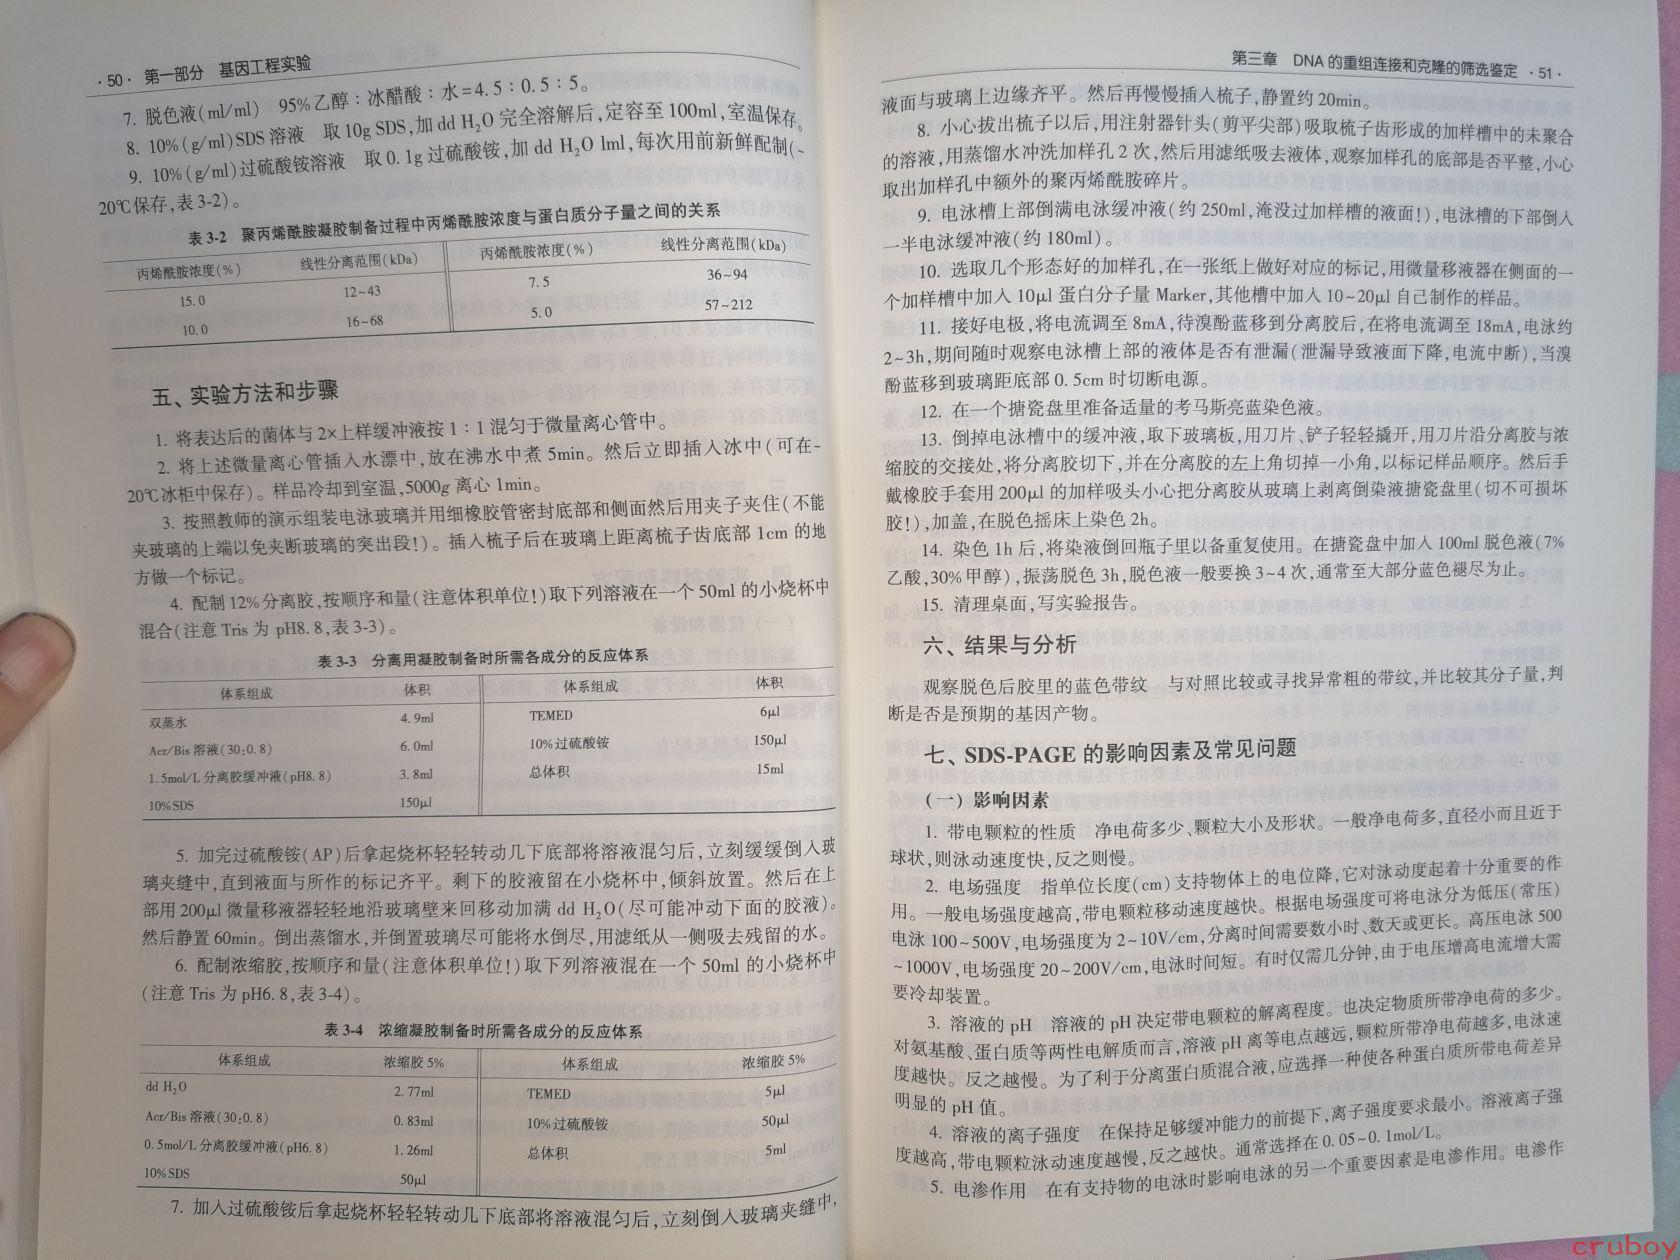 ·50· 第一部分 基因工程实验
7. 脱色液(ml/ml) 95%乙醇：冰醋酸：水=4.5：0.5：5。
8. 10%(g/ml)SDS溶液 取10g SDS,加dd H₂O完全溶解后,定容至100ml,室温保存。
9. 10%(g/ml)过硫酸铵溶液 取0.1g过硫酸铵,加dd H₂O 1ml,每次用前新鲜配制(-
20℃保存,表3-2)。
表3-2 聚丙烯酰胺凝胶制备过程中丙烯酰胺浓度与蛋白质分子量之间的关系
丙烯酰胺浓度(%) 线性分离范围(kDa) 丙烯酰胺浓度(%) 线性分离范围(kDa)
15.0 12~43 7.5 36~94
10.0 16~68 5.0 57~212
五、实验方法和步骤
1. 将表达后的菌体与2×上样缓冲液按1：1混匀于微量离心管中。
2. 将上述微量离心管插入水漂中,放在沸水中煮5min。然后立即插入冰中(可在-
20℃冰柜中保存)。样品冷却到室温,5000g离心1min。
3. 按照教师的演示组装电泳玻璃并用细橡胶管密封底部和侧面然后用夹子夹住(不能
夹玻璃的上端以免夹断玻璃的突出段!)。插入梳子后在玻璃上距离梳子齿底部1cm的地
方做一个标记。
4. 配制12%分离胶,按顺序和量(注意体积单位!)取下列溶液在一个50ml的小烧杯中
混合(注意Tris为pH8.8,表3-3)。
表3-3 分离用凝胶制备时所需各成分的反应体系
体系组成 体积 体系组成 体积
双蒸水 4.9ml TEMED 6μl
Acr/Bis溶液(30:0.8) 6.0ml 10%过硫酸铵 150μl
1.5mol/L分离胶缓冲液(pH8.8) 3.8ml 总体积 15ml
10%SDS 150μl
5. 加完过硫酸铵(AP)后拿起烧杯轻轻转动几下底部将溶液混匀后,立刻缓缓倒入玻
璃夹缝中,直到液面与所作的标记齐平。剩下的胶液留在小烧杯中,倾斜放置。然后在上
部用200μl微量移液器轻轻地沿玻璃壁来回移动加满dd H₂O(尽可能冲动下面的胶液)。
然后静置60min。倒出蒸馏水,并倒置玻璃尽可能将水倒尽,用滤纸从一侧吸去残留的水。
6. 配制浓缩胶,按顺序和量(注意体积单位!)取下列溶液混在一个50ml的小烧杯中
(注意Tris为pH6.8,表3-4)。
表3-4 浓缩凝胶制备时所需各成分的反应体系
体系组成 浓缩胶5% 体系组成 浓缩胶5%
dd H₂O 2.77ml TEMED 5μl
Acr/Bis溶液(30:0.8) 0.83ml 10%过硫酸铵 50μl
0.5mol/L分离胶缓冲液(pH6.8) 1.26ml 总体积 5ml
10%SDS 50μl
7. 加入过硫酸铵后拿起烧杯轻轻转动几下底部将溶液混匀后,立刻倒入玻璃夹缝中,
第三章 DNA的重组连接和克隆的筛选鉴定 ·51·
液面与玻璃上边缘齐平。然后再慢慢插入梳子,静置约20min。
8. 小心拔出梳子以后,用注射器针头(剪平尖部)吸取梳子齿形成的加样槽中的未聚合
的溶液,用蒸馏水冲洗加样孔2次,然后用滤纸吸去液体,观察加样孔的底部是否平整,小心
取出加样孔中额外的聚丙烯酰胺碎片。
9. 电泳槽上部倒满电泳缓冲液(约250ml,淹没过加样槽的液面!),电泳槽的下部倒入
一半电泳缓冲液(约180ml)。
10. 选取几个形态好的加样孔,在一张纸上做好对应的标记,用微量移液器在侧面的一
个加样槽中加入10μl蛋白分子量Marker,其他槽中加入10~20μl自己制作的样品。
11. 接好电极,将电流调至8mA,待溴酚蓝移到分离胶后,在将电流调至18mA,电泳约
2~3h,期间随时观察电泳槽上部的液体是否有泄漏(泄漏导致液面下降,电流中断),当溴
酚蓝移到玻璃距底部0.5cm时切断电源。
12. 在一个搪瓷盘里准备适量的考马斯亮蓝染色液。
13. 倒掉电泳槽中的缓冲液,取下玻璃板,用刀片、铲子轻轻撬开,用刀片沿分离胶与浓
缩胶的交接处,将分离胶切下,并在分离胶的左上角切掉一小角,以标记样品顺序。然后手
戴橡胶手套用200μl的加样吸头小心把分离胶从玻璃上剥离倒染液搪瓷盘里(切不可损坏
胶!),加盖,在脱色摇床上染色2h。
14. 染色1h后,将染液倒回瓶子里以备重复使用。在搪瓷盘中加入100ml脱色液(7%
乙酸,30%甲醇),振荡脱色3h,脱色液一般要换3~4次,通常至大部分蓝色褪尽为止。
15. 清理桌面,写实验报告。
六、结果与分析
观察脱色后胶里的蓝色带纹 与对照比较或寻找异常粗的带纹,并比较其分子量,判
断是否是预期的基因产物。
七、SDS-PAGE的影响因素及常见问题
(一) 影响因素
1. 带电颗粒的性质 净电荷多少、颗粒大小及形状。一般净电荷多,直径小而且近于
球状,则泳动速度快,反之则慢。
2. 电场强度 指单位长度(cm)支持物体上的电位降,它对泳动度起着十分重要的作
用。一般电场强度越高,带电颗粒移动速度越快。根据电场强度可将电泳分为低压(常压)
电泳100~500V,电场强度为2~10V/cm,分离时间需要数小时、数天或更长。高压电泳500
~1000V,电场强度20~200V/cm,电泳时间短。有时仅需几分钟,由于电压增高电流增大需
要冷却装置。
3. 溶液的pH 溶液的pH决定带电颗粒的解离程度。也决定物质所带净电荷的多少。
对氨基酸、蛋白质等两性电解质而言,溶液pH离等电点越远,颗粒所带净电荷越多,电泳速
度越快。反之越慢。为了利于分离蛋白质混合液,应选择一种使各种蛋白质所带电荷差异
明显的pH值。
4. 溶液的离子强度 在保持足够缓冲能力的前提下,离子强度要求最小。溶液离子强
度越高,带电颗粒泳动速度越慢,反之越快。通常选择在0.05~0.1mol/L。
5. 电渗作用 在有支持物的电泳时影响电泳的另一个重要因素是电渗作用。电渗作
cruboy